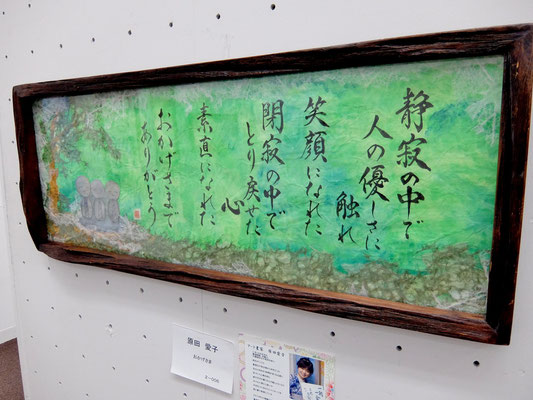 静寂の中で
人の優しさに
触れ
笑顔になれた
閑寂の中で
とり戻せた
心
素直になれた
おかげさまで
ありがとう
原田 愛子
おかげさま